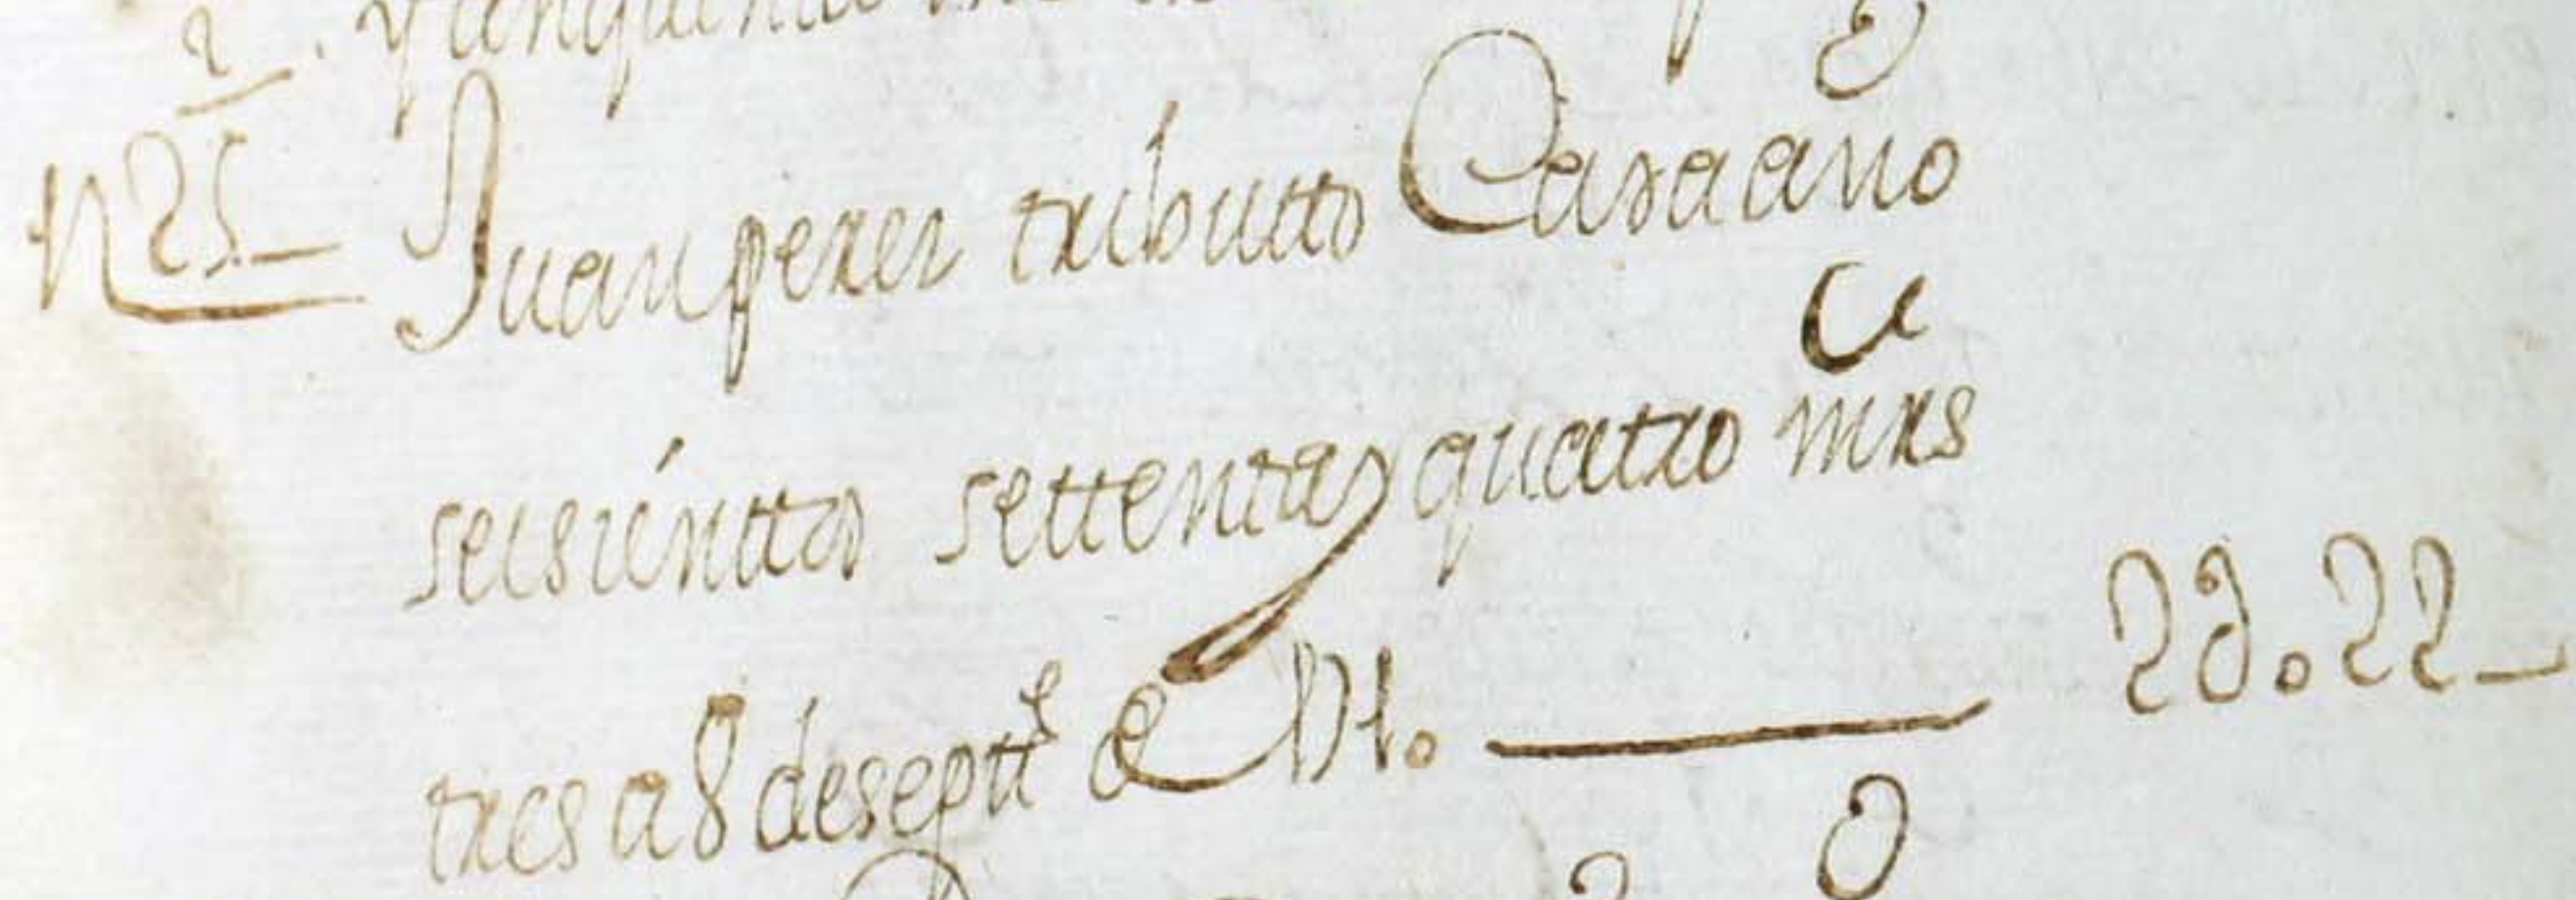 y cinquenta
N 25 Juan perez tributto Cada año
seisientos settenta y quatro mrs
tres a 8 de septe 29.22